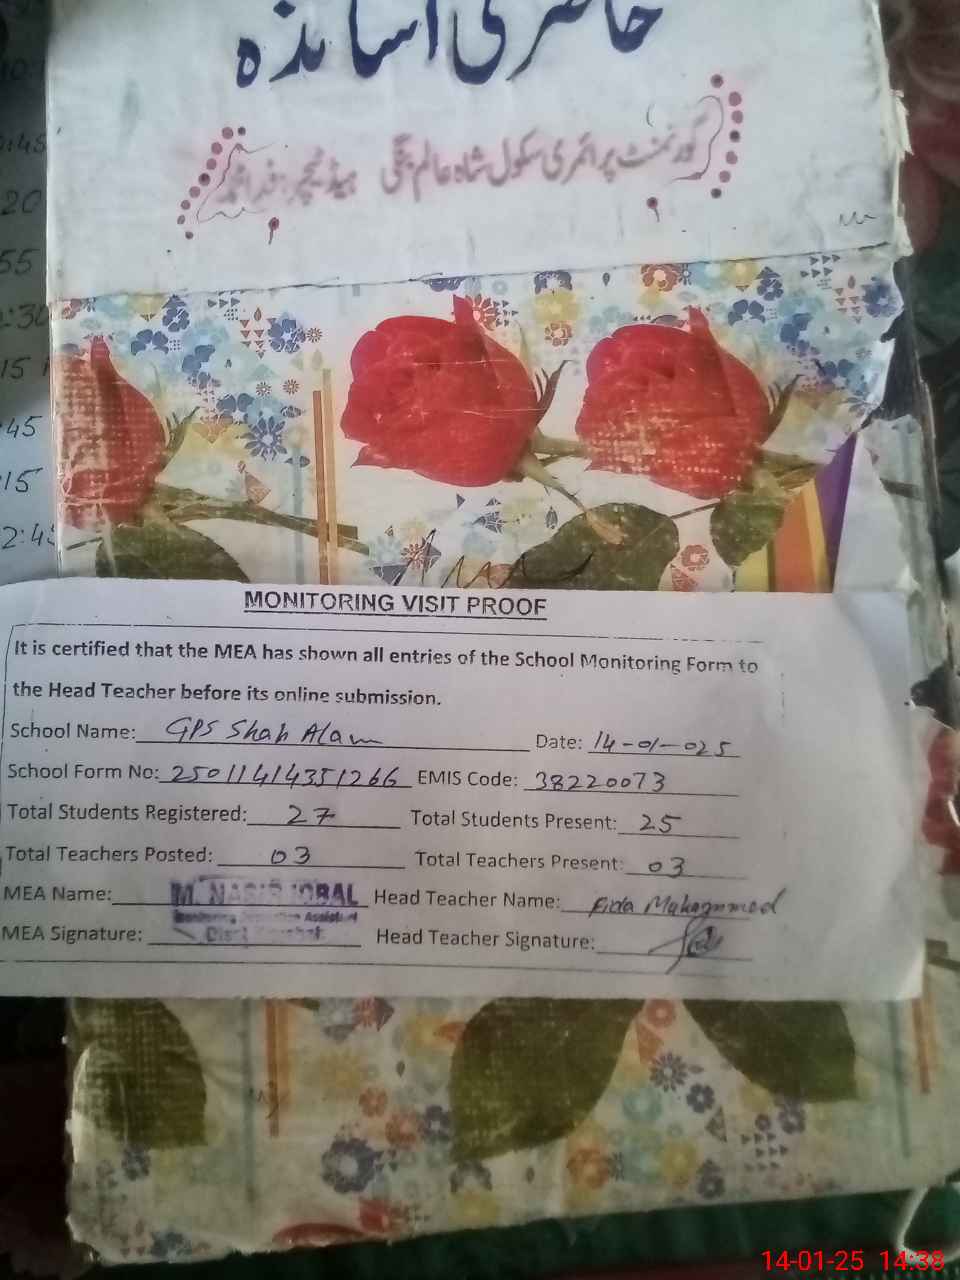 حاضری اساتذہ
گورنمنٹ پرائمری سکول شاہ عالم بیگی ہیڈ ٹیچر: فدا محمد
10:
:45
20
55
:30
15
:45
:15
2:45
MONITORING VISIT PROOF
It is certified that the MEA has shown all entries of the School Monitoring Form to
the Head Teacher before its online submission.
School Name: GPS Shah Alam Date: 14-01-025
School Form No: 25011414351266 EMIS Code: 38220073
Total Students Registered: 27 Total Students Present: 25
Total Teachers Posted: 03 Total Teachers Present: 03
MEA Name: M. NASIR IQBAL Head Teacher Name: Fida Muhammed
Monitoring Assistant
MEA Signature: Distt Head Teacher Signature:
14-01-25 14:38